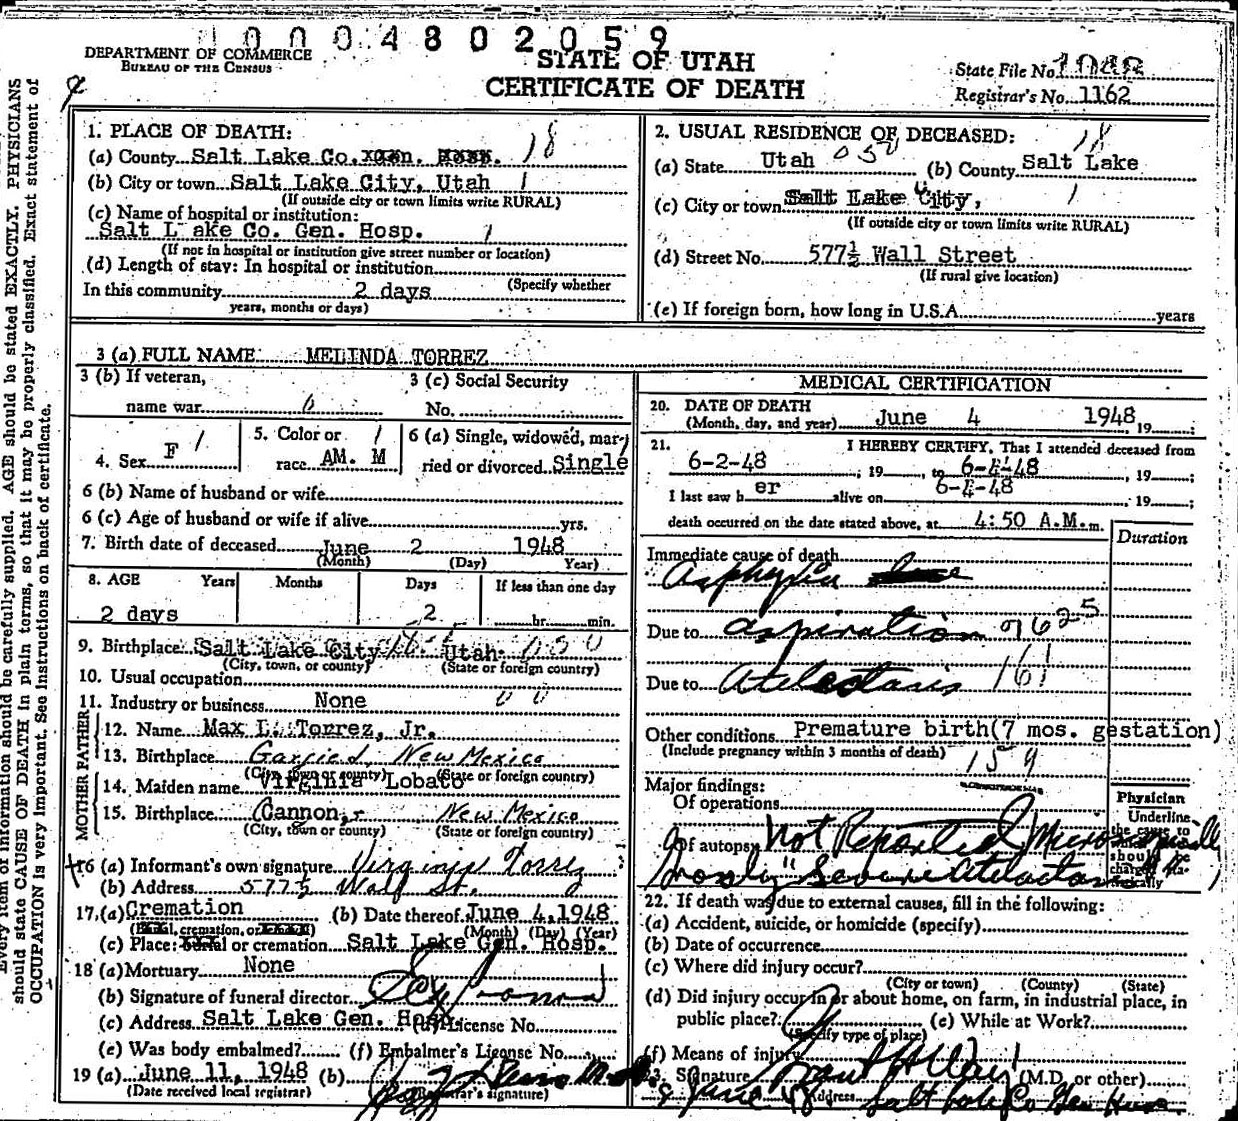 0004802059
DEPARTMENT OF COMMERCE
BUREAU OF THE CENSUS
STATE OF UTAH
CERTIFICATE OF DEATH
State File No.
Registrar's No. 1162
Every item of information should be carefully supplied. AGE should be stated EXACTLY. PHYSICIANS
should state CAUSE OF DEATH in plain terms, so that it may be properly classified. Exact statement of
OCCUPATION is very important. See instructions on back of certificate.
1. PLACE OF DEATH: 18
(a) County Salt Lake Co.
(b) City or town Salt Lake City, Utah 1
(If outside city or town limits write RURAL)
(c) Name of hospital or institution:
Salt Lake Co. Gen. Hosp. 1
(If not in hospital or institution give street number or location)
(d) Length of stay: In hospital or institution
(Specify whether
In this community 2 days
years, months or days)
2. USUAL RESIDENCE OF DECEASED: 18
(a) State Utah 050 (b) County Salt Lake
(c) City or town Salt Lake City, 1
(If outside city or town limits write RURAL)
(d) Street No. 577½ Wall Street
(If rural give location)
(e) If foreign born, how long in U.S.A. years
3 (a) FULL NAME MELINDA TORREZ
3 (b) If veteran,
name war 0
3 (c) Social Security
No.
4. Sex F 1
5. Color or 1
race AM. M
6 (a) Single, widowed, mar-
ried or divorced Single
6 (b) Name of husband or wife
6 (c) Age of husband or wife if alive yrs.
7. Birth date of deceased June 2 1948
(Month) (Day) Year)
8. AGE Years Months Days If less than one day
2 days 2 hr. min.
9. Birthplace Salt Lake City Utah 050
(City, town, or county) (State or foreign country)
10. Usual occupation
11. Industry or business None 00
FATHER
12. Name Max L. Torrez, Jr.
13. Birthplace Garfied, New Mexico
(City, town or county) (State or foreign country)
MOTHER
14. Maiden name Virginia Lobato
15. Birthplace Cannon, New Mexico
(City, town or county) (State or foreign country)
16 (a) Informant's own signature Virginia Torrez
(b) Address 577½ Wall St.
17. (a) Cremation (b) Date thereof June 4, 1948
(Burial, cremation, or (Month) (Day) (Year)
(c) Place: burial or cremation Salt Lake Gen. Hosp.
18 (a) Mortuary None
(b) Signature of funeral director
(c) Address Salt Lake Gen. Hosp. (d) License No.
(e) Was body embalmed? (f) Embalmer's License No.
19 (a) June 11, 1948 (b)
(Date received local registrar) (Registrar's signature)
MEDICAL CERTIFICATION
20. DATE OF DEATH
(Month, day, and year) June 4 1948, 19 ;
21. I HEREBY CERTIFY, That I attended deceased from
6-2-48, 19 , to 6-4-48, 19 ;
I last saw her alive on 6-4-48, 19 ;
death occurred on the date stated above, at 4:50 A.M. m.
Duration
Immediate cause of death
Asphyxia
Due to aspiration 9625
Due to Atelectasis 161
Other conditions Premature birth(7 mos. gestation)
(Include pregnancy within 3 months of death)
159
Major findings:
Of operations
Of autopsy Not Reported Microscopically
Grossly "Severe Atelectasis
Physician
Underline
the cause to
which
should be
charged sta-
tistically
22. If death was due to external causes, fill in the following:
(a) Accident, suicide, or homicide (specify)
(b) Date of occurrence
(c) Where did injury occur?
(City or town) (County) (State)
(d) Did injury occur in or about home, on farm, in industrial place, in
public place? (e) While at Work?
(Specify type of place)
(f) Means of injury
23. Signature (M.D. or other)
9 June 48 Address Salt Lake Co Gen Hosp.